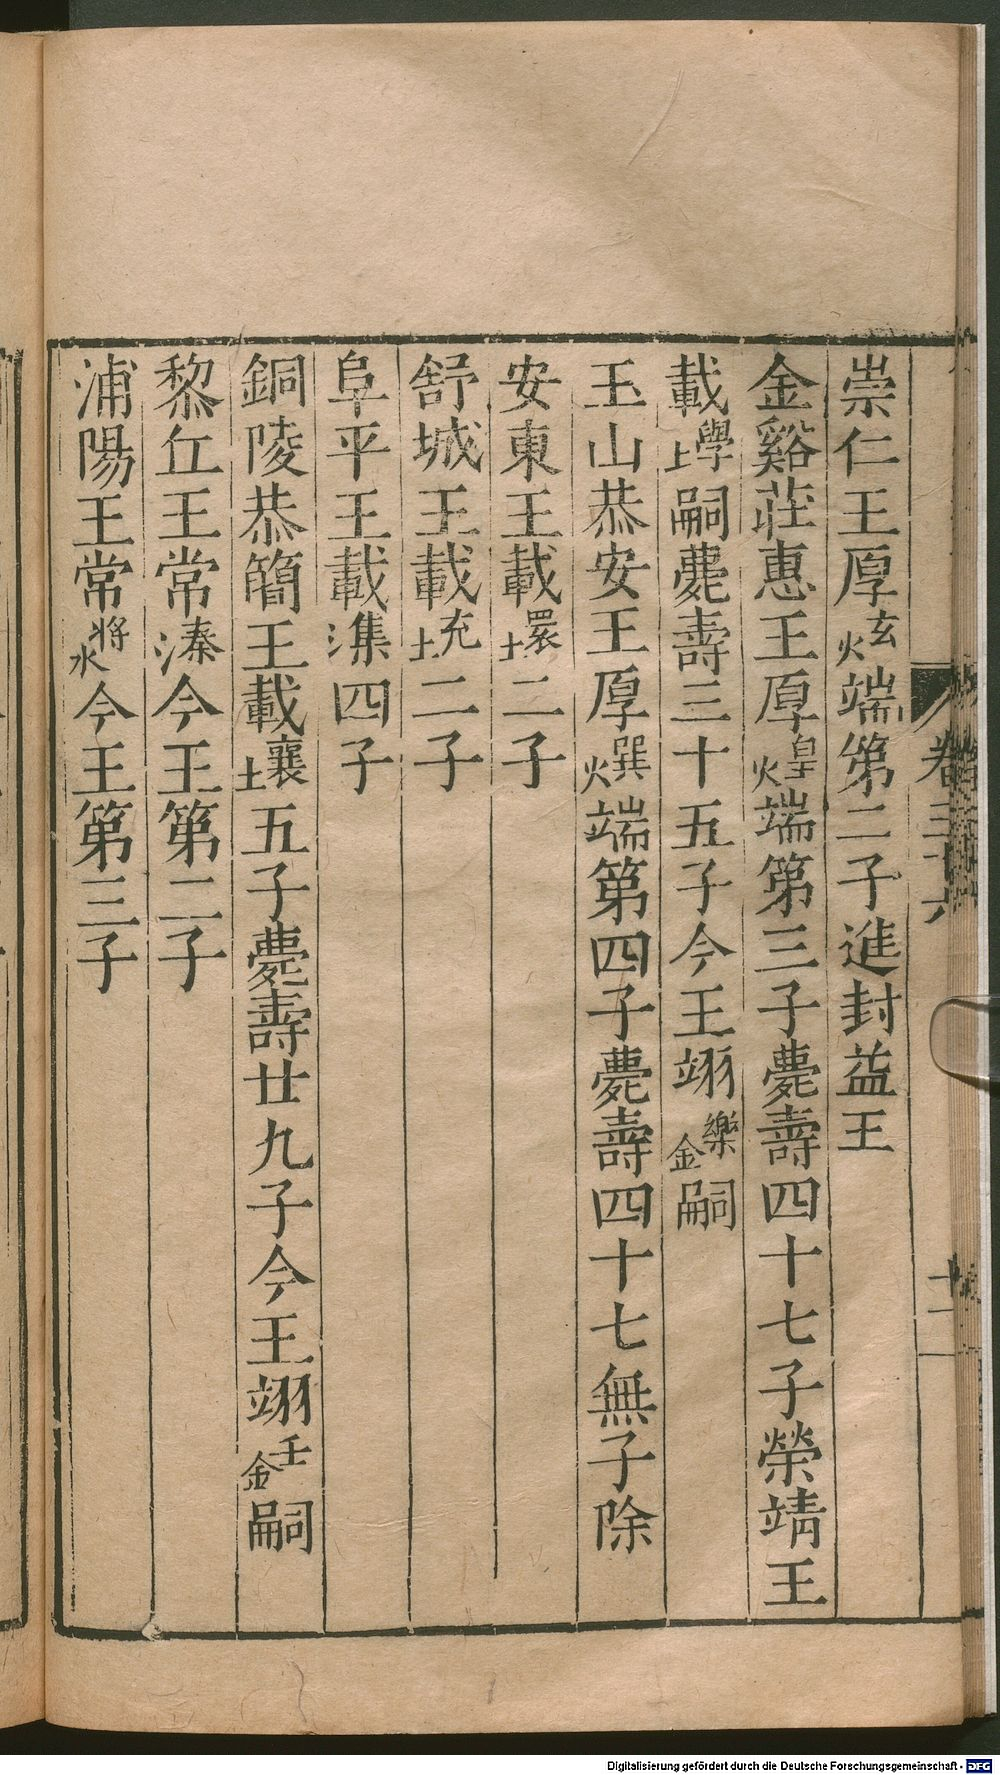 崇仁王厚玄火端第二子進封益王
金谿莊惠王厚皇火端第三子薨壽四十七子榮靖王
載學土嗣薨壽三十五子今王翊樂金嗣
玉山恭安王厚巽火端第四子薨壽四十七無子除
安東王載睘土二子
舒城王載充土二子
阜平王載㵫四子
銅陵恭簡王載襄土五子薨壽廿九子今王翊壬金嗣
黎丘王常溱今王第二子
浦陽王常將水今王第三子
卷三十六
十二
Digitalisierung gefördert durch die Deutsche Forschungsgemeinschaft - DFG